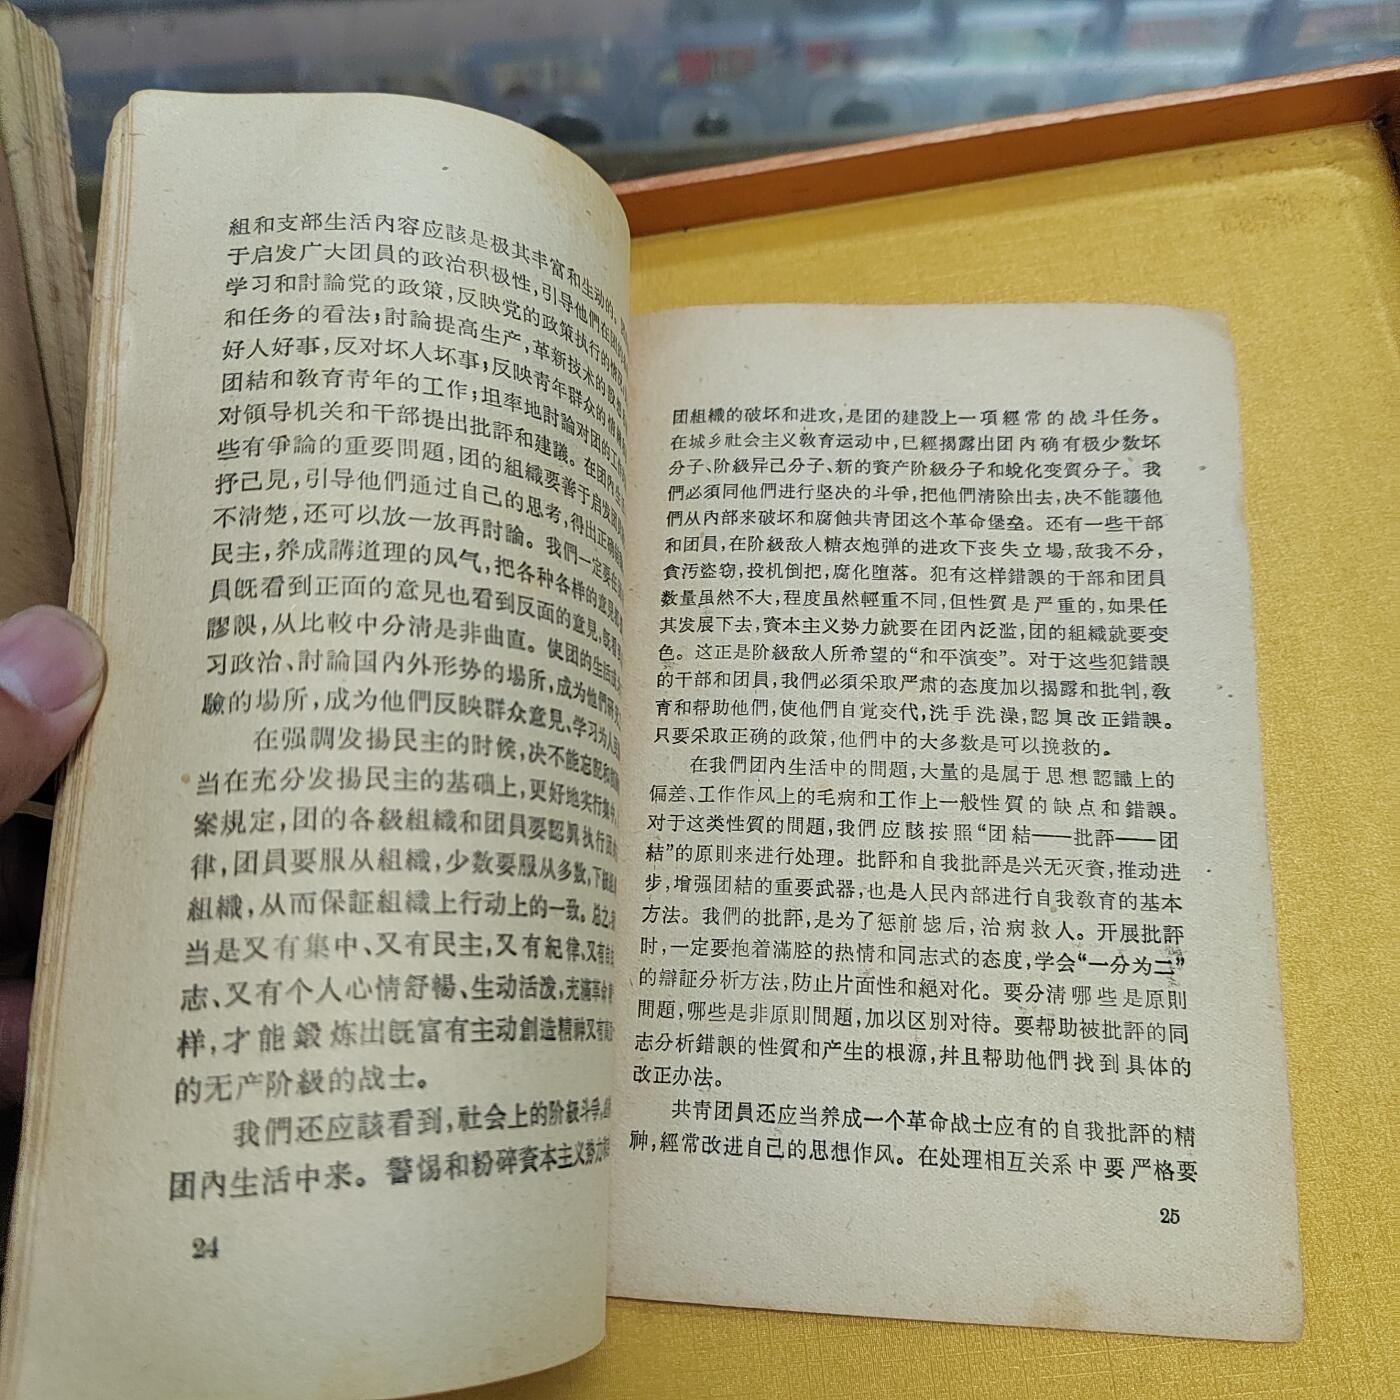 組和支部生活內容应該是极其丰富和生动的。
于启发广大团員的政治积极性，引导他們在团的
学习和討論党的政策，反映党的政策执行的情况
和任务的看法；討論提高生产，革新技术的
好人好事，反对坏人坏事；反映靑年群众的情緖
团結和敎育靑年的工作；坦率地討論对团的工作
对領导机关和干部提出批評和建議。在团內生
些有爭論的重要問題，团的組織要善于启发团員
抒己見，引导他們通过自己的思考，得出正确
不清楚，还可以放一放再討論。我們一定要在
民主，养成講道理的风气，把各种各样的意見都
員旣看到正面的意見也看到反面的意見，旣看
謬誤，从比較中分清是非曲直。使团的生活成为
习政治、討論国內外形势的場所，成为他們研究
驗的場所，成为他們反映群众意見、学习为人民
在强調发揚民主的时候，决不能忘記和
当在充分发揚民主的基础上，更好地实行集中。
案規定，团的各級組織和团員要認眞执行团的
律，团員要服从組織，少数要服从多数，下級
組織，从而保証組織上行动上的一致。总之，
当是又有集中、又有民主，又有紀律、又有自
志、又有个人心情舒暢、生动活泼，充滿革命
样，才能鍛炼出旣富有主动創造精神又有
的无产阶級的战士。
我們还应該看到，社会上的阶級斗爭，
团內生活中来。警惕和粉碎資本主义势力
24
团組織的破坏和进攻，是团的建設上一項經常的战斗任务。
在城乡社会主义敎育运动中，已經揭露出团內确有极少数坏
分子、阶級异己分子、新的資产阶級分子和蛻化变質分子。我
們必須同他們进行坚决的斗爭，把他們清除出去，决不能讓他
們从內部来破坏和腐蝕共靑团这个革命堡垒。还有一些干部
和团員，在阶級敌人糖衣炮弹的进攻下丧失立場，敌我不分，
貪汚盜窃，投机倒把，腐化堕落。犯有这样錯誤的干部和团員
数量虽然不大，程度虽然輕重不同，但性質是严重的，如果任
其发展下去，資本主义势力就要在团內泛滥，团的組織就要变
色。这正是阶級敌人所希望的“和平演变”。对于这些犯錯誤
的干部和团員，我們必須采取严肃的态度加以揭露和批判，敎
育和帮助他們，使他們自覚交代，洗手洗澡，認眞改正錯誤。
只要采取正确的政策，他們中的大多数是可以挽救的。
在我們团內生活中的問題，大量的是属于思想認識上的
偏差、工作作风上的毛病和工作上一般性質的缺点和錯誤。
对于这类性質的問題，我們应該按照“团結——批評——团
結”的原則来进行处理。批評和自我批評是兴无灭資，推动进
步，增强团結的重要武器，也是人民內部进行自我敎育的基本
方法。我們的批評，是为了惩前毖后，治病救人。开展批評
时，一定要抱着滿腔的热情和同志式的态度，学会“一分为二”
的辯証分析方法，防止片面性和絕对化。要分清哪些是原則
問題，哪些是非原則問題，加以区别对待。要帮助被批評的同
志分析錯誤的性質和产生的根源，幷且帮助他們找到具体的
改正办法。
共靑团員还应当养成一个革命战士应有的自我批評的精
神，經常改进自己的思想作风。在处理相互关系中要严格要
25